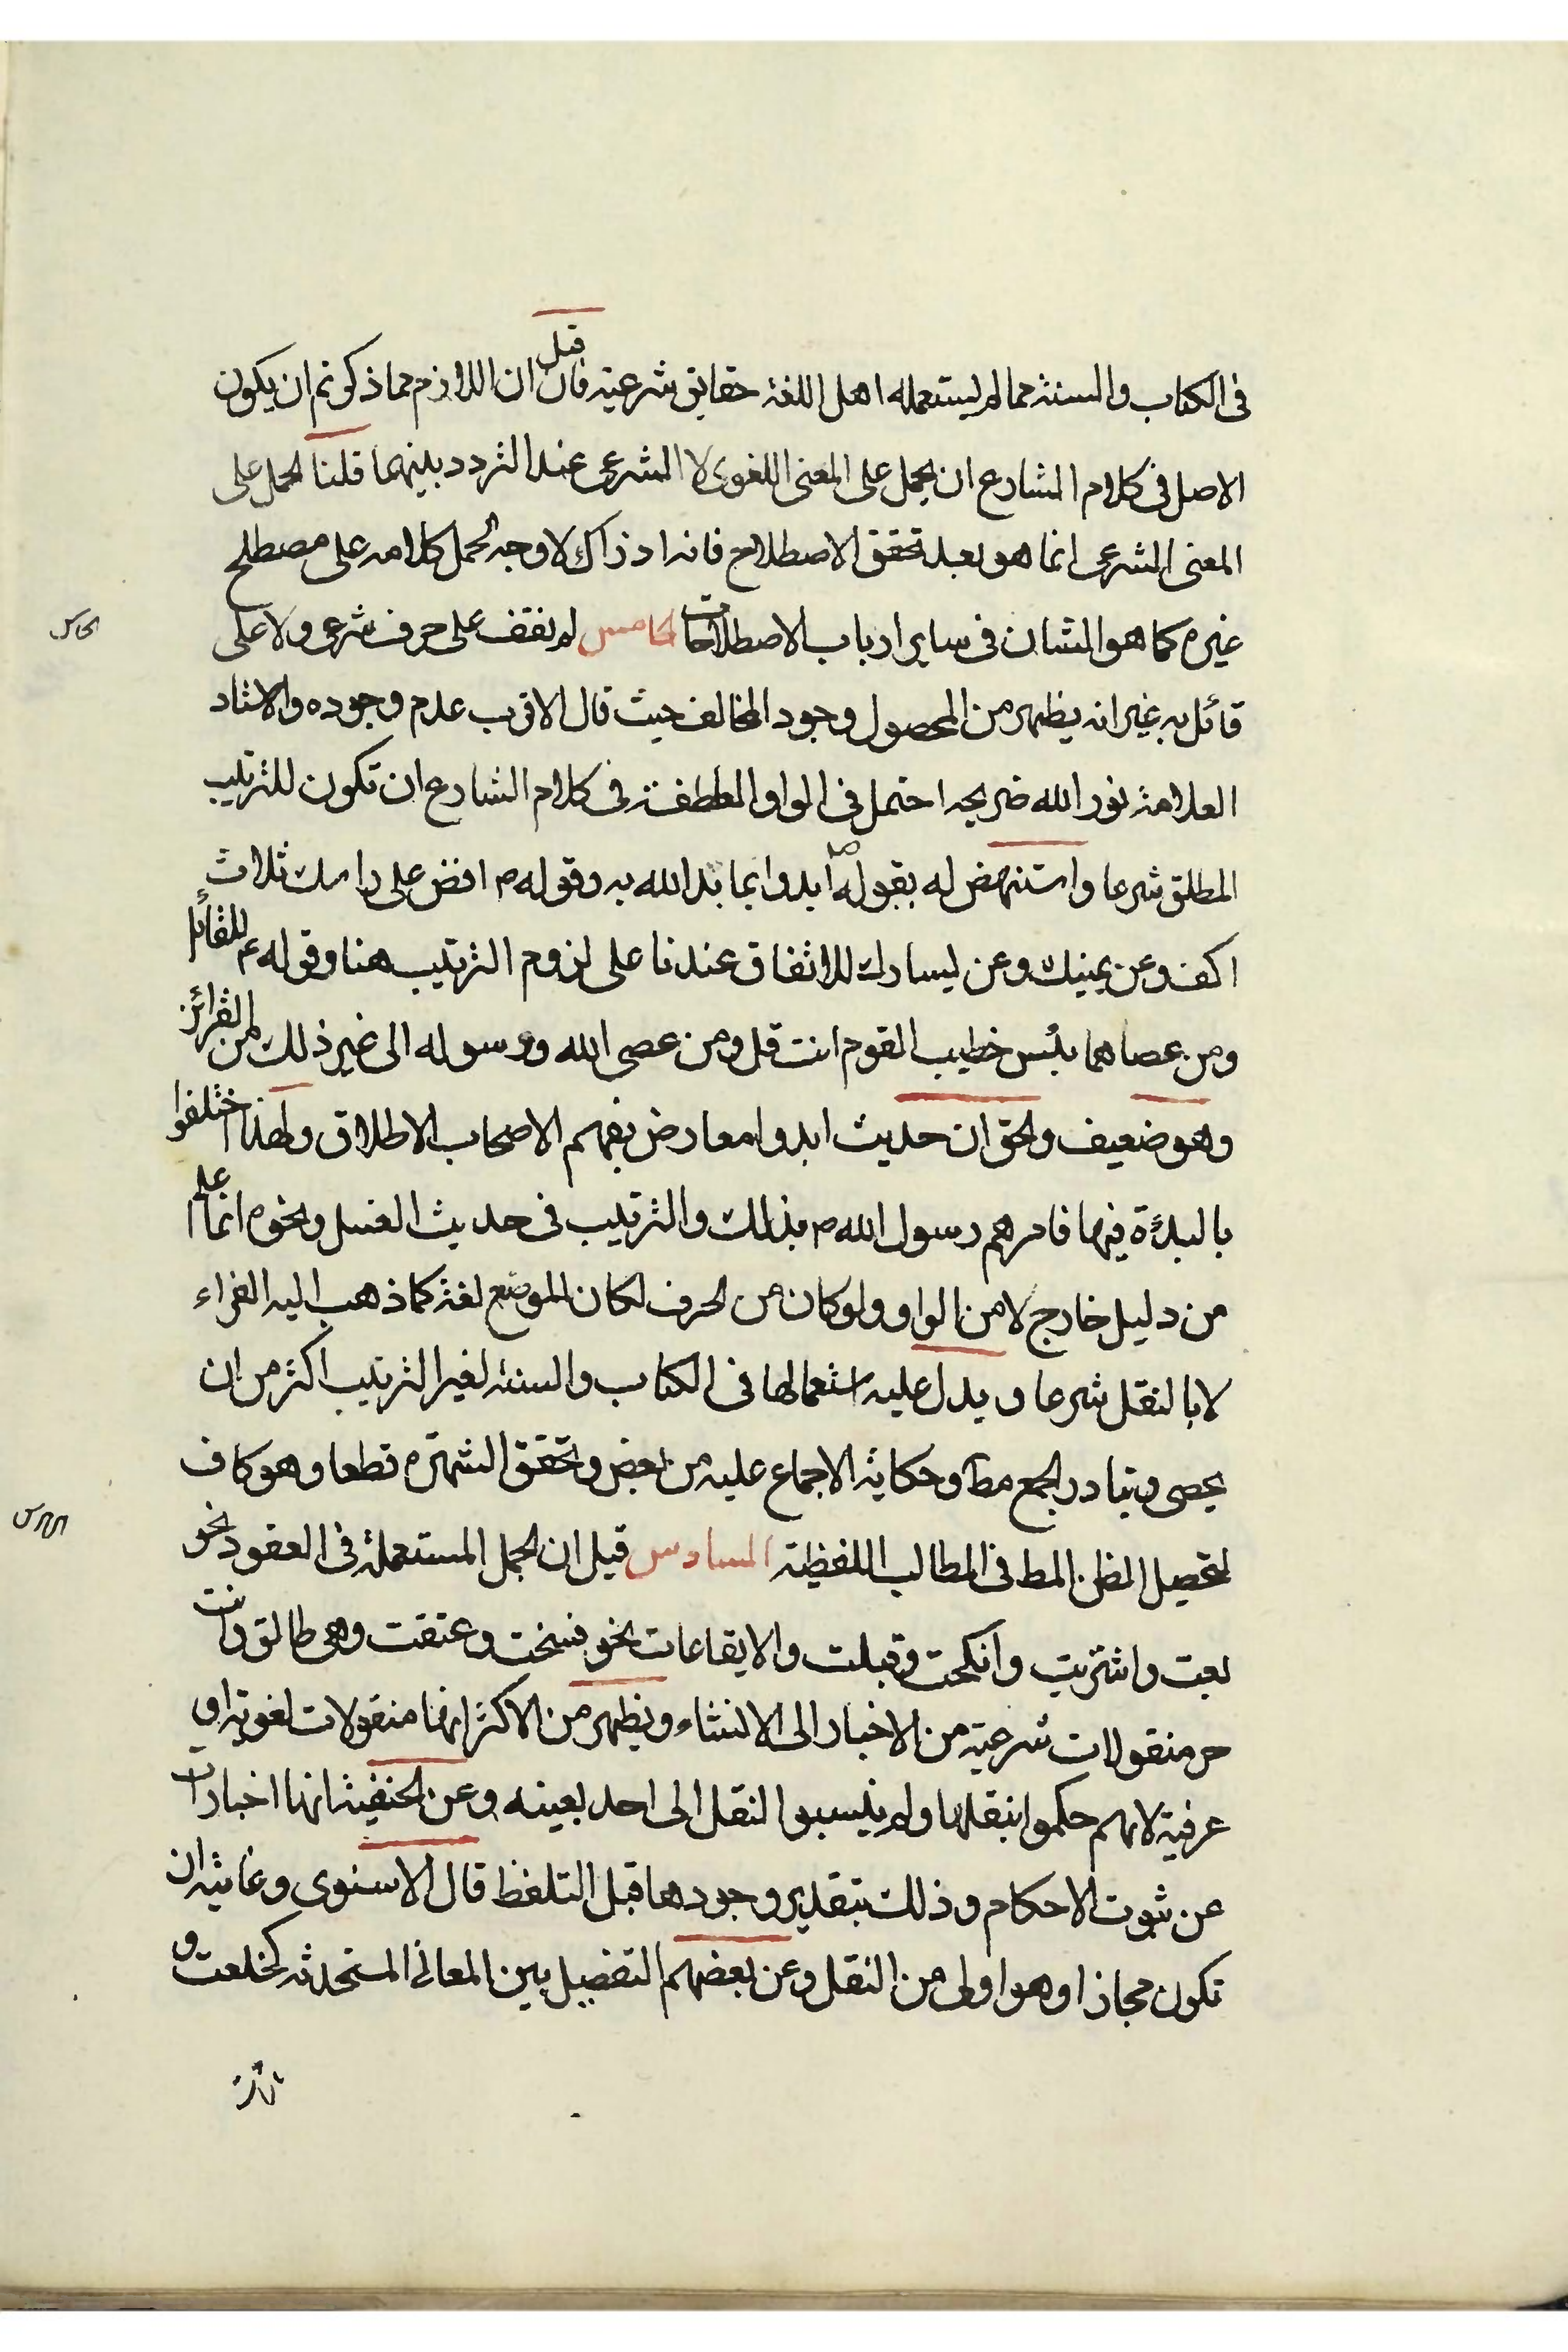 في الكتاب والسنة مما لم يستعمله اهل اللغة حقايق شرعية فان قيل ان اللازم مما ذكرتم ان يكون
الاصل في كلام الشارع ان يحمل على المعنى اللغوى لا الشرعى عند التردد بينهما قلنا الحمل على
المعنى الشرعى انما هو بعد تحقق الاصطلاح فانه اذ ذاك لا وجه لحمل كلامه على مصطلح
غيره كما هو الشان في ساير ارباب الاصطلاحات الخامس لم نقف على حرف شرعى ولا على
قائل به غير انه يظهر من المحصول وجود المخالف حيث قال الاقرب عدم وجوده والاستاد
العلامة نور الله ضريحه احتمل في الواو العاطفة في كلام الشارع ان تكون للترتيب
المطلق شرعا واستنهض له بقوله ص ابدوا بما بدا الله به وقوله ص افض على راسك ثلاث
اكف وعن يمينك وعن يسارك للاتفاق عندنا على لزوم الترتيب هنا وقوله ع للقائل
ومن عصاهما بئس خطيب القوم انت قل ومن عصى الله ورسوله الى غير ذلك من القرائن
وهو ضعيف والحق ان حديث ابدوا معارض بفهم الاصحاب الاطلاق ولهذا اختلفوا
بالبدءة فيها فامرهم رسول الله ص بذلك والترتيب في حديث الغسل ونحوه انما علم
من دليل خارج لا من الواو ولو كان من الحرف لكان للوضع لغة كما ذهب اليه الفراء
لا بالنقل شرعا ويدل عليه استعمالها في الكتاب والسنة لغير الترتيب اكثر من ان
يحصى وتبادر الجمع مط وحكاية الاجماع عليه من بعض وتحقق الشهرة قطعا وهو كاف
لتحصيل الظن المط في المطالب اللفظية السادس قيل ان الجمل المستعملة في العقود نحو
بعت واشتريت وانكحت وقبلت والايقاعات نحو فسخت وعتقت وهى طالق وانت
حر منقولات شرعية من الاخبار الى الانشاء ويظهر من الاكثر انها منقولات لغوية او
عرفية لانهم حكموا بنقلها ولم ينسبوا النقل الى احد بعينه وعن الحنفية انها اخبارات
عن ثبوت الاحكام وذلك بتقدير وجودها قبل التلفظ قال الاسنوى وغايته ان
تكون مجازا وهو اولى من النقل وعن بعضهم التفصيل بين المعانى المستحدثة كخلعت و